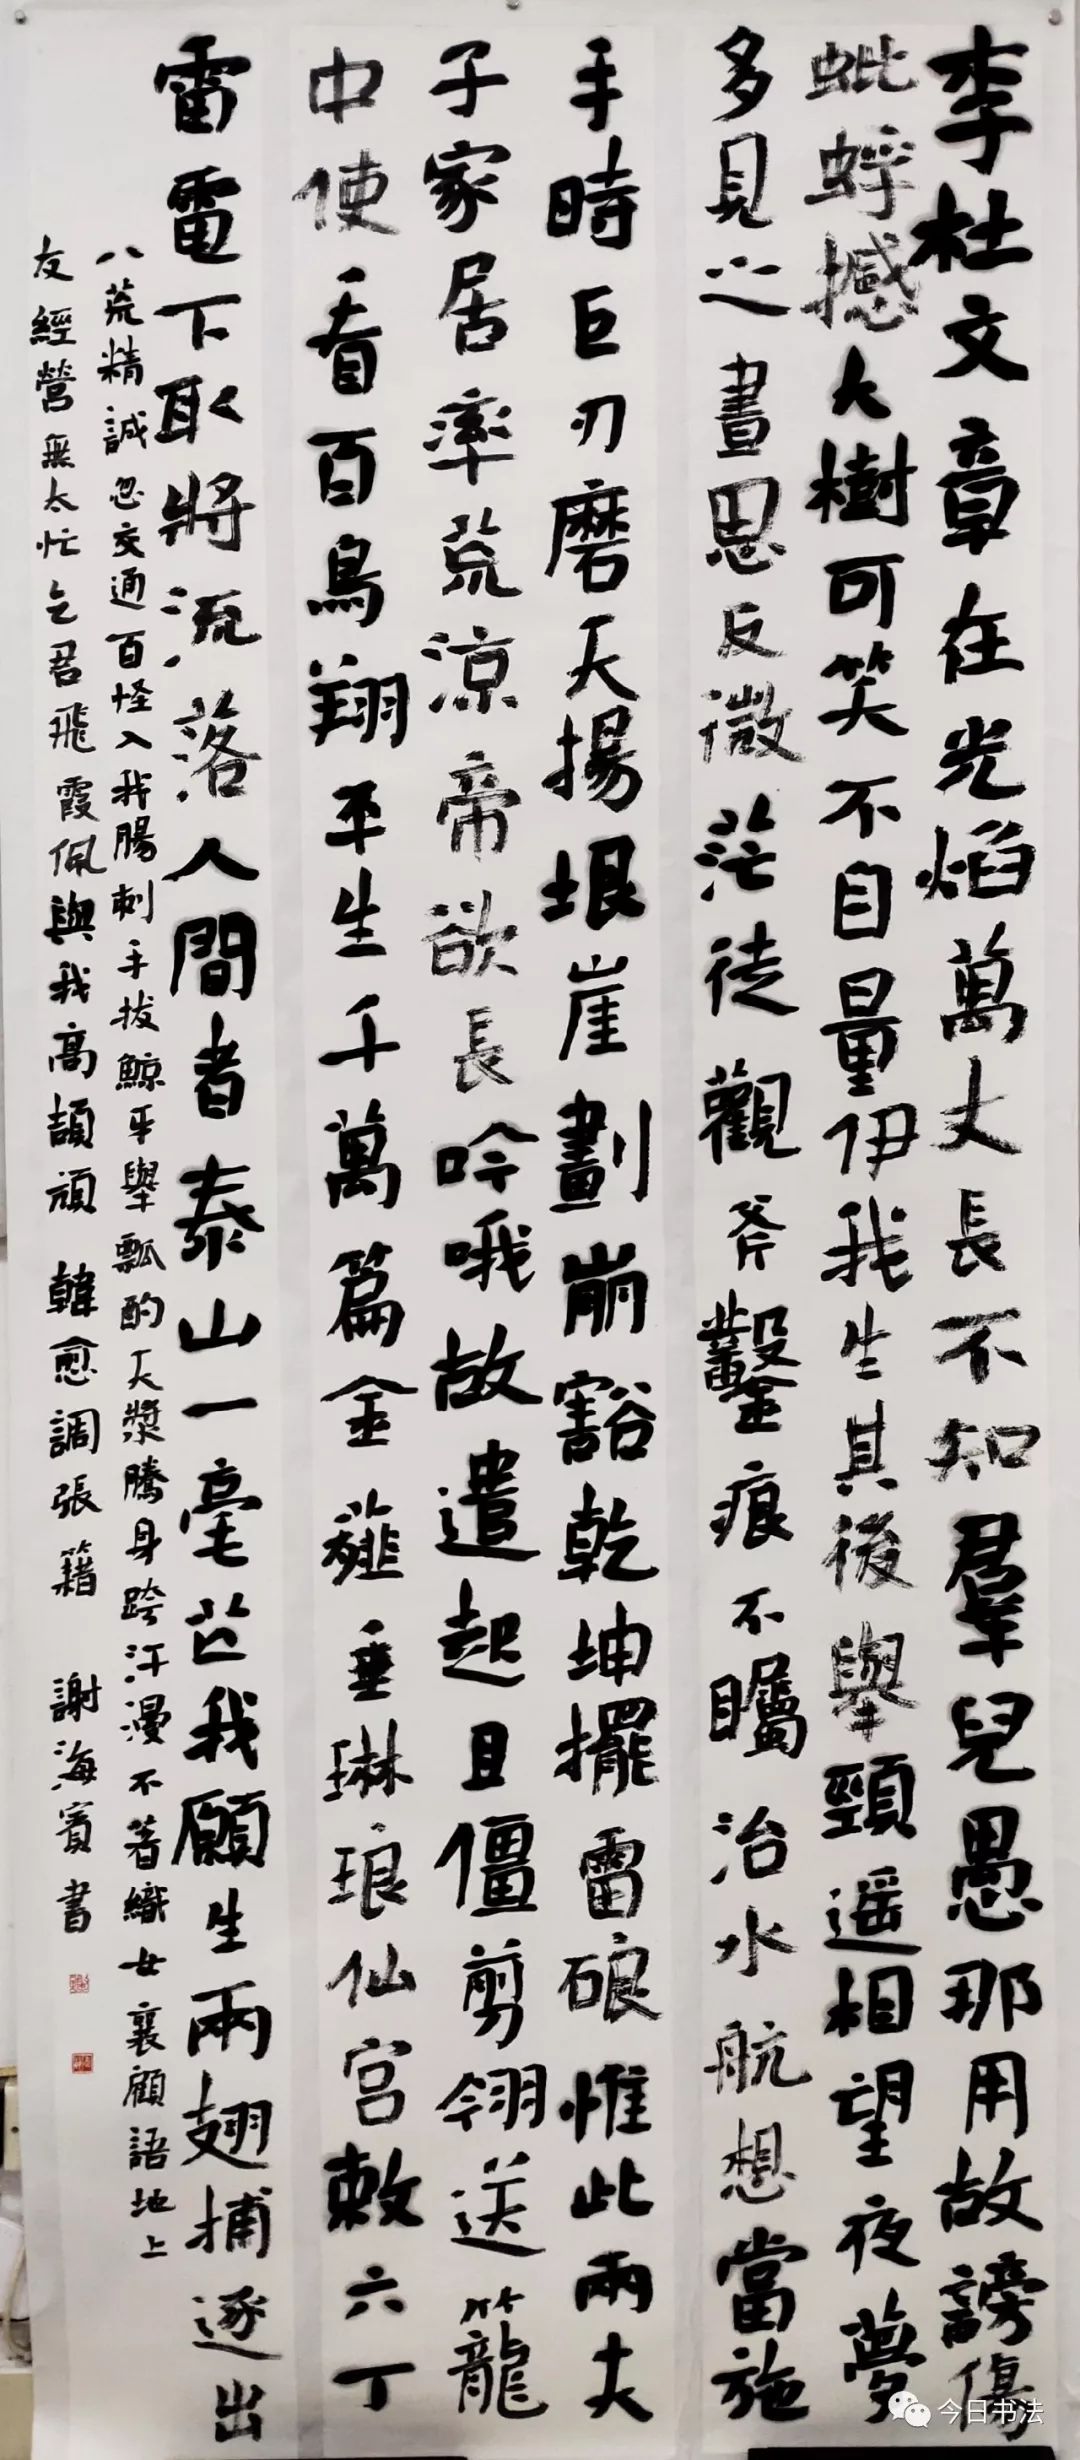 李杜文章在光焰萬丈長不知羣兒愚那用故謗傷
蚍蜉撼大樹可笑不自量伊我生其後舉頸遥相望夜夢
多見之晝思反微茫徒觀斧鑿痕不矚治水航想當施
手時巨刃磨天揚垠崖劃崩豁乾坤擺雷硠惟此兩夫
子家居率荒涼帝欲長吟哦故遣起且僵剪翎送籠
中使看百鳥翔平生千萬篇金薤垂琳琅仙宫敕六丁
雷電下取將流落人間者泰山一毫芒我願生兩翅捕逐出
八荒精誠忽交通百怪入我腸刺手拔鯨牙舉瓢酌天漿騰身跨汗漫不著織女襄顧語地上
友經營無太忙乞君飛霞佩與我高頡頏 韓愈調張籍 謝海賓書
今日书法